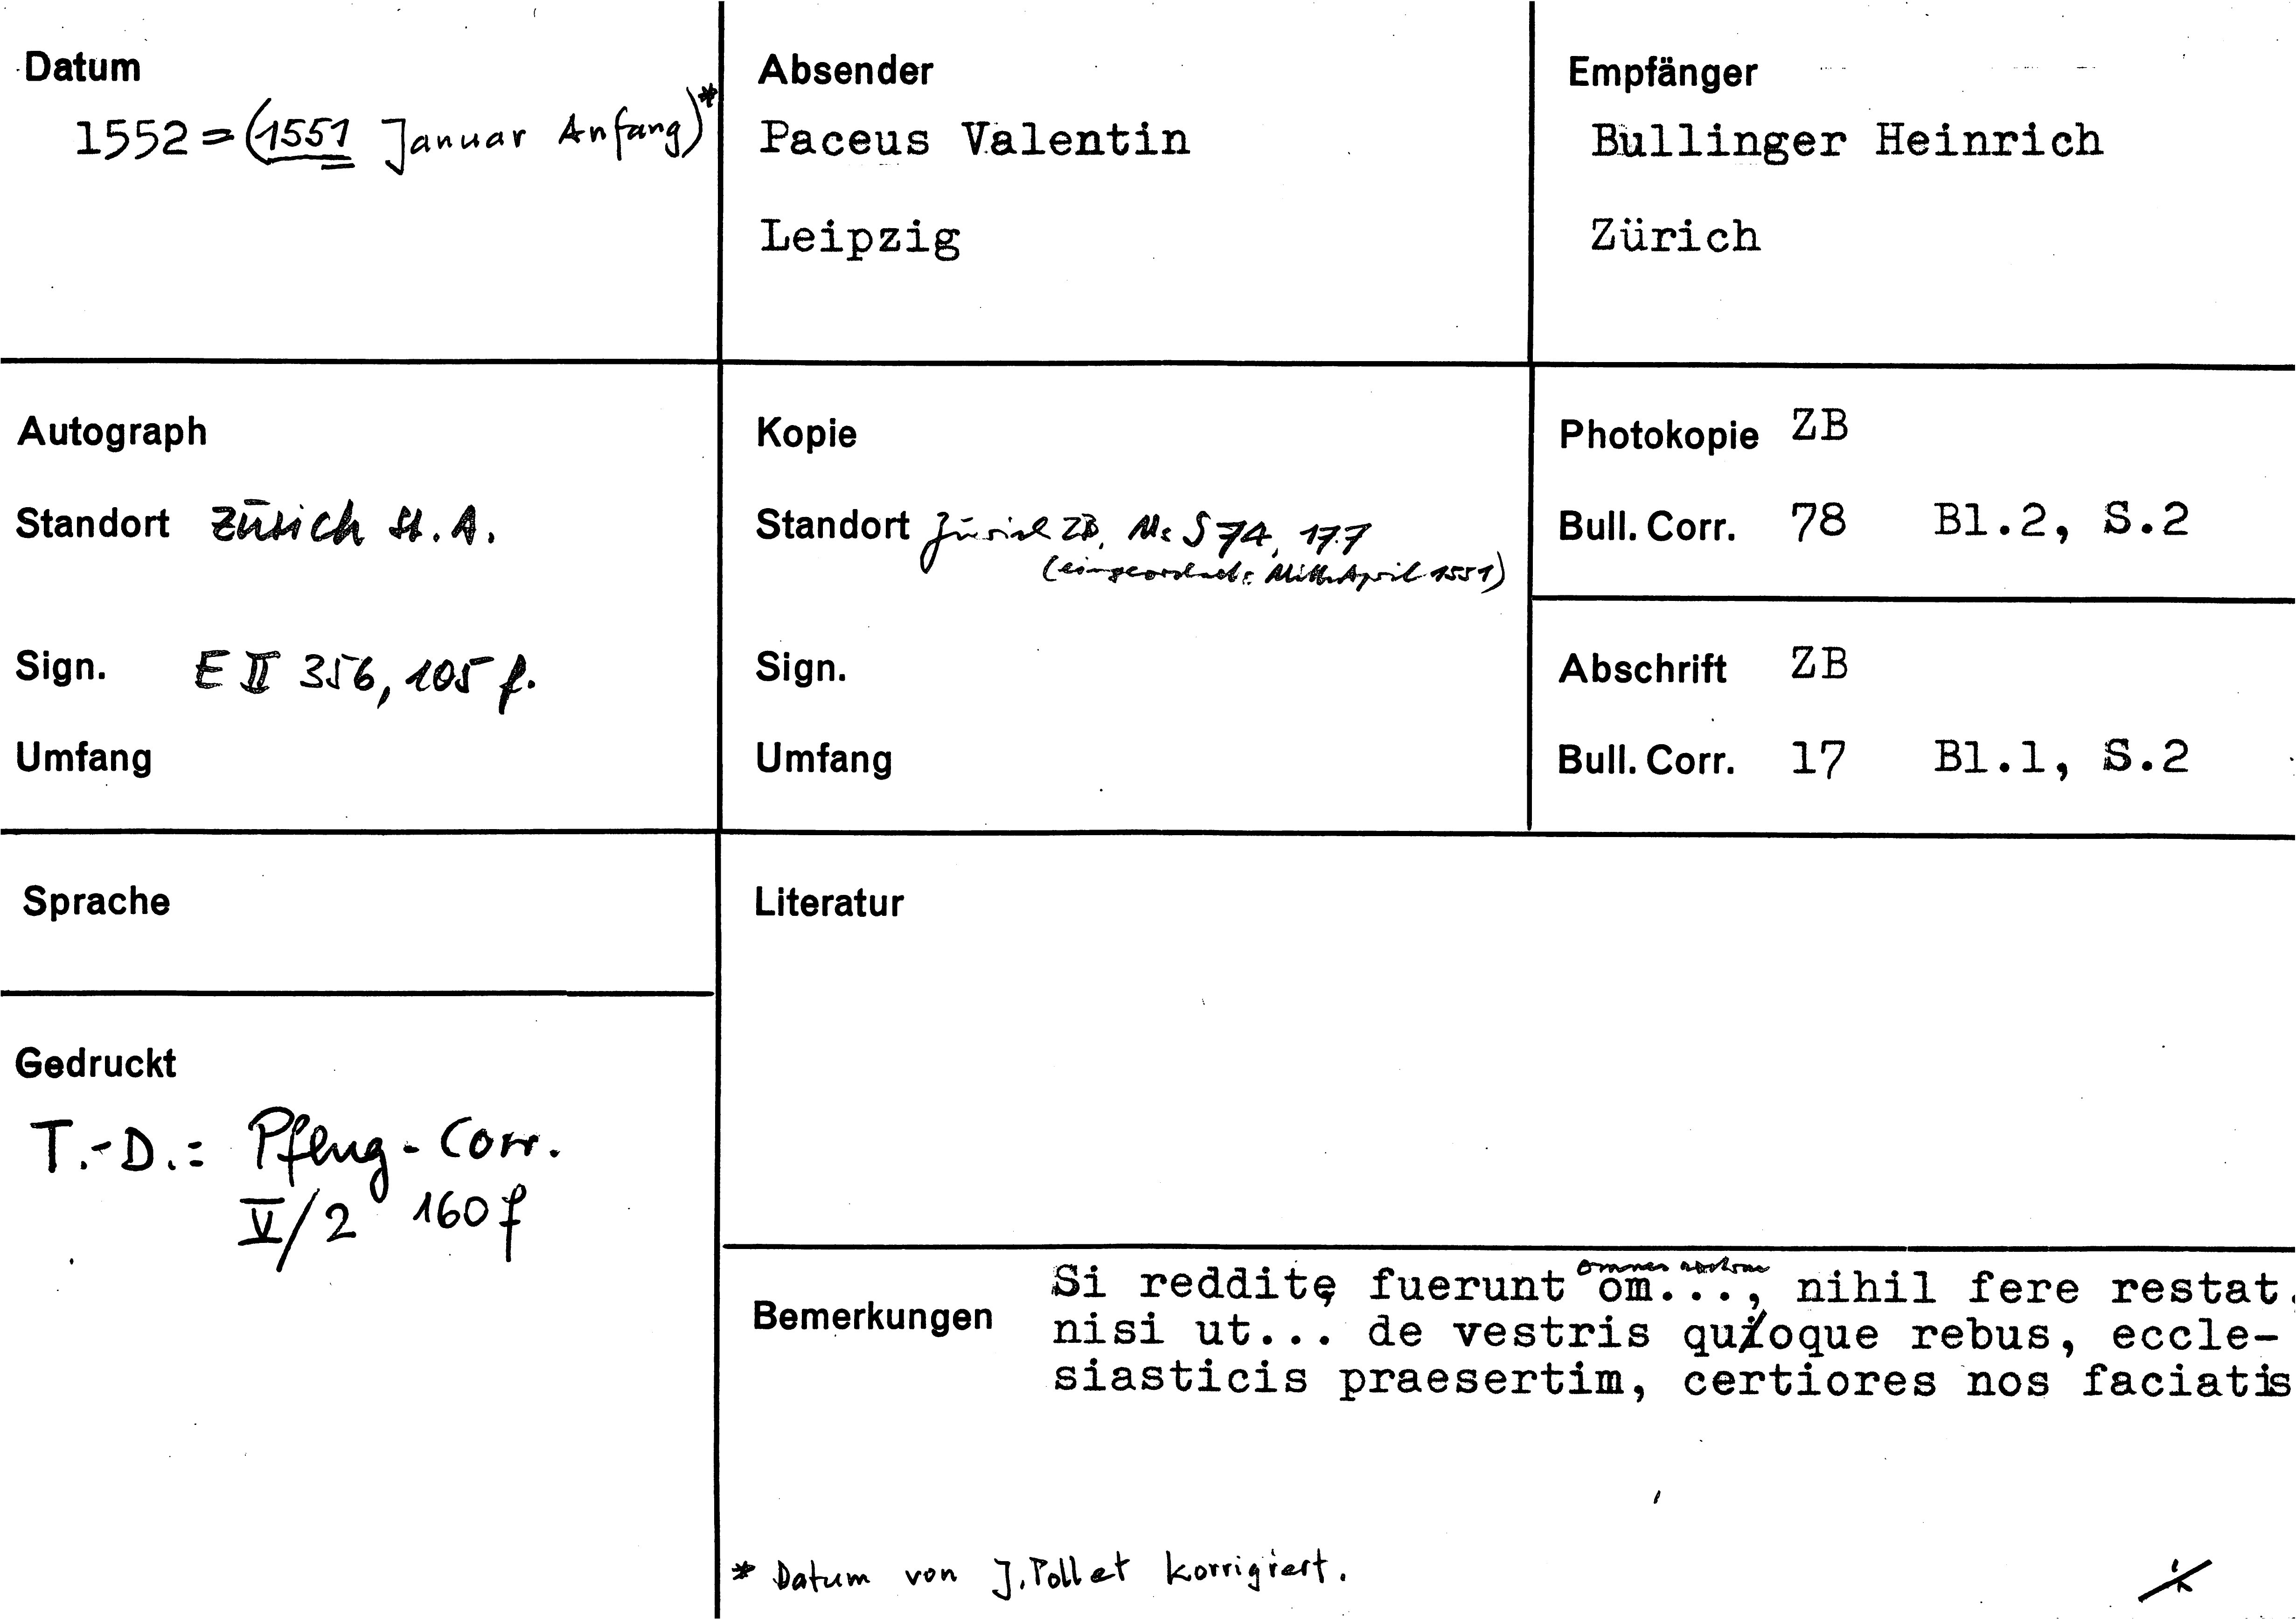 Datum
1552 = (1551 Januar Anfang)*
Absender
Paceus Valentin
Leipzig
Empfänger
Bullinger Heinrich
Zürich
Autograph
Standort Zürich St. A.
Sign. E II 356, 105 f.
Umfang
Kopie
Standort Zürich ZB, Ms S 74, 177
(eingeordnet: Mitte April 1551)
Sign.
Umfang
Photokopie ZB
Bull. Corr. 78 Bl.2, S.2
Abschrift ZB
Bull. Corr. 17 Bl.1, S.2
Sprache
Gedruckt
T.-D.: Pflug-Corr.
V/2 160 f
Literatur
Bemerkungen
omnes nostrae
Si redditę fuerunt om..., nihil fere restat.
nisi ut... de vestris quoque rebus, eccle-
siasticis praesertim, certiores nos faciatis
* Datum von J. Pollet korrigiert.